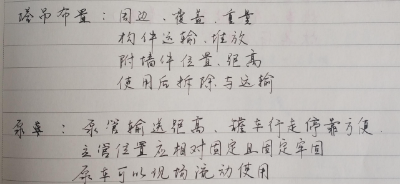 塔吊布置：周边、覆盖、重量
构件运输、堆放
附墙件位置、距离
使用后拆除与运输
泵车：泵管输送距离、罐车行走停靠方便
主管位置应相对固定且固定牢固
泵车可以现场流动使用